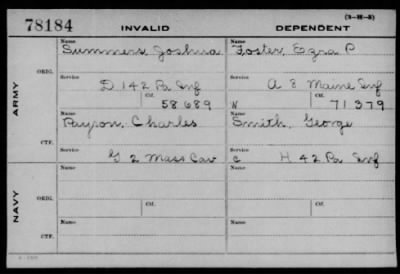 (3-H-5)
78184 INVALID DEPENDENT
Name Name
Summers, Joshua Foster, Ezra P
Service Service
D 142 Pa Inf A 8 Maine Inf
ORIG. Ctf. Ctf.
58689 W 71379
ARMY
Name Name
Payson, Charles Smith, George
CTF.
Service Service
G 2 Mass Cav C H 42 Pa Inf
Name Name
ORIG.
Service Service
Ctf. Ctf.
NAVY
Name Name
CTF.